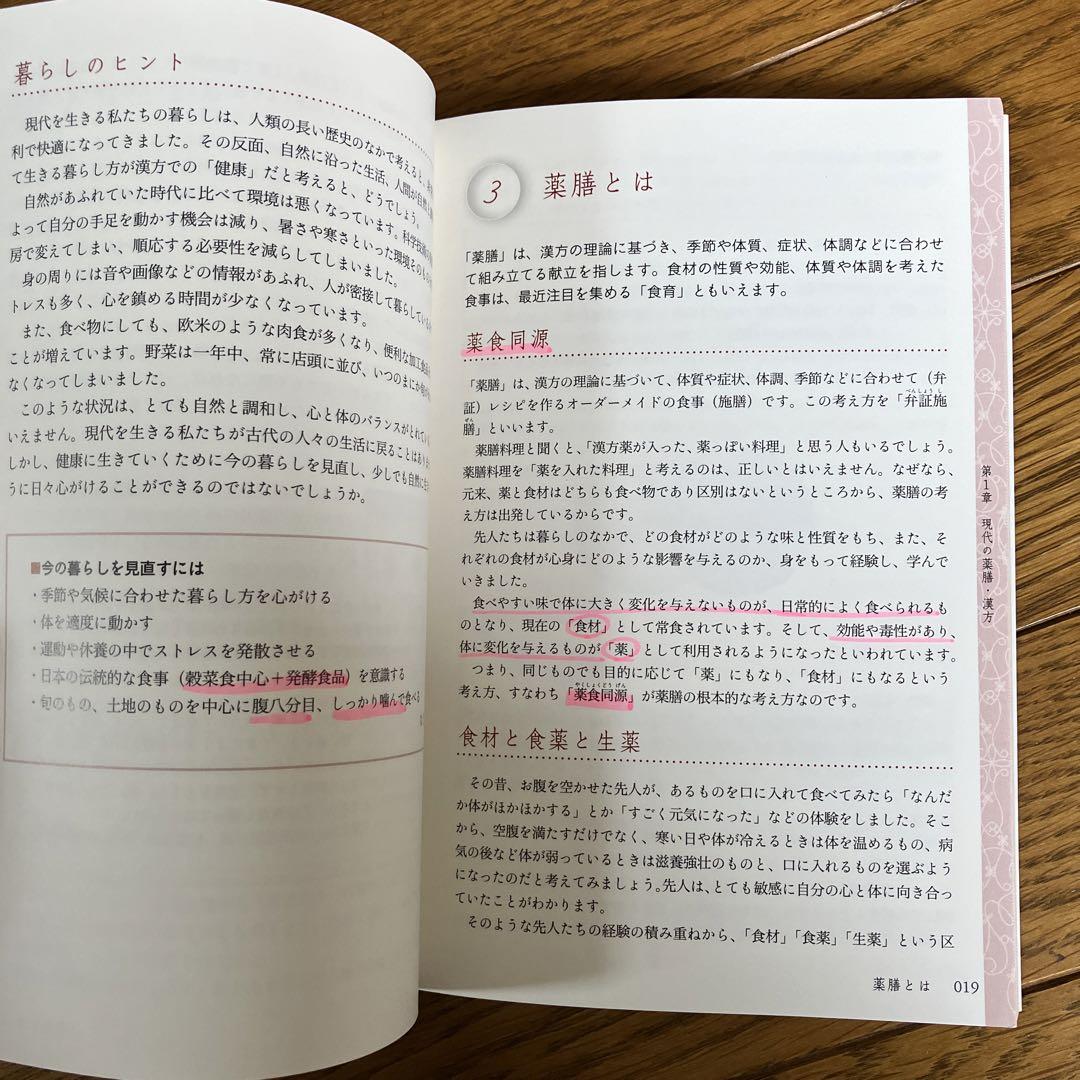 暮らしのヒント
現代を生きる私たちの暮らしは、人類の長い歴史のなかで考えると、
利で快適になってきました。その反面、自然に沿った生活、人間が自然
て生きる暮らし方が漢方での「健康」だと考えると、どうでしょう。
自然があふれていた時代に比べて環境は悪くなっています。科学技術
よって自分の手足を動かす機会は減り、暑さや寒さといった環境そのもの
房で変えてしまい、順応する必要性を減らしてしまいました。
身の周りには音や画像などの情報があふれ、人が密接して暮らしている
トレスも多く、心を鎮める時間が少なくなっています。
また、食べ物にしても、欧米のような肉食が多くなり、便利な加工食品
ことが増えています。野菜は一年中、常に店頭に並び、いつのまにか
なくなってしまいました。
このような状況は、とても自然と調和し、心と体のバランスがとれて
いえません。現代を生きる私たちが古代の人々の生活に戻ることはあり
しかし、健康に生きていくために今の暮らしを見直し、少しでも自然に
うに日々心がけることができるのではないでしょうか。
■今の暮らしを見直すには
・季節や気候に合わせた暮らし方を心がける
・体を適度に動かす
・運動や休養の中でストレスを発散させる
・日本の伝統的な食事（穀菜食中心＋発酵食品）を意識する
・旬のもの、土地のものを中心に腹八分目、しっかり噛んで食べる
3 薬膳とは
「薬膳」は、漢方の理論に基づき、季節や体質、症状、体調などに合わせ
て組み立てる献立を指します。食材の性質や効能、体質や体調を考えた
食事は、最近注目を集める「食育」ともいえます。
薬食同源
「薬膳」は、漢方の理論に基づいて、体質や症状、体調、季節などに合わせて（弁
証）レシピを作るオーダーメイドの食事（施膳）です。この考え方を「弁証施
膳」といいます。
薬膳料理と聞くと、「漢方薬が入った、薬っぽい料理」と思う人もいるでしょう。
薬膳料理を「薬を入れた料理」と考えるのは、正しいとはいえません。なぜなら、
元来、薬と食材はどちらも食べ物であり区別はないというところから、薬膳の考
え方は出発しているからです。
先人たちは暮らしのなかで、どの食材がどのような味と性質をもち、また、そ
れぞれの食材が心身にどのような影響を与えるのか、身をもって経験し、学んで
いきました。
食べやすい味で体に大きく変化を与えないものが、日常的によく食べられるも
のとなり、現在の「食材」として常食されています。そして、効能や毒性があり、
体に変化を与えるものが「薬」として利用されるようになったといわれています。
つまり、同じものでも目的に応じて「薬」にもなり、「食材」にもなるという
考え方、すなわち「薬食同源」が薬膳の根本的な考え方なのです。
食材と食薬と生薬
その昔、お腹を空かせた先人が、あるものを口に入れて食べてみたら「なんだ
か体がほかほかする」とか「すごく元気になった」などの体験をしました。そこ
から、空腹を満たすだけでなく、寒い日や体が冷えるときは体を温めるもの、病
気の後など体が弱っているときは滋養強壮のものと、口に入れるものを選ぶよう
になったのだと考えてみましょう。先人は、とても敏感に自分の心と体に向き合っ
ていたことがわかります。
そのような先人たちの経験の積み重ねから、「食材」「食薬」「生薬」という区
第1章 現代の薬膳・漢方
薬膳とは 019